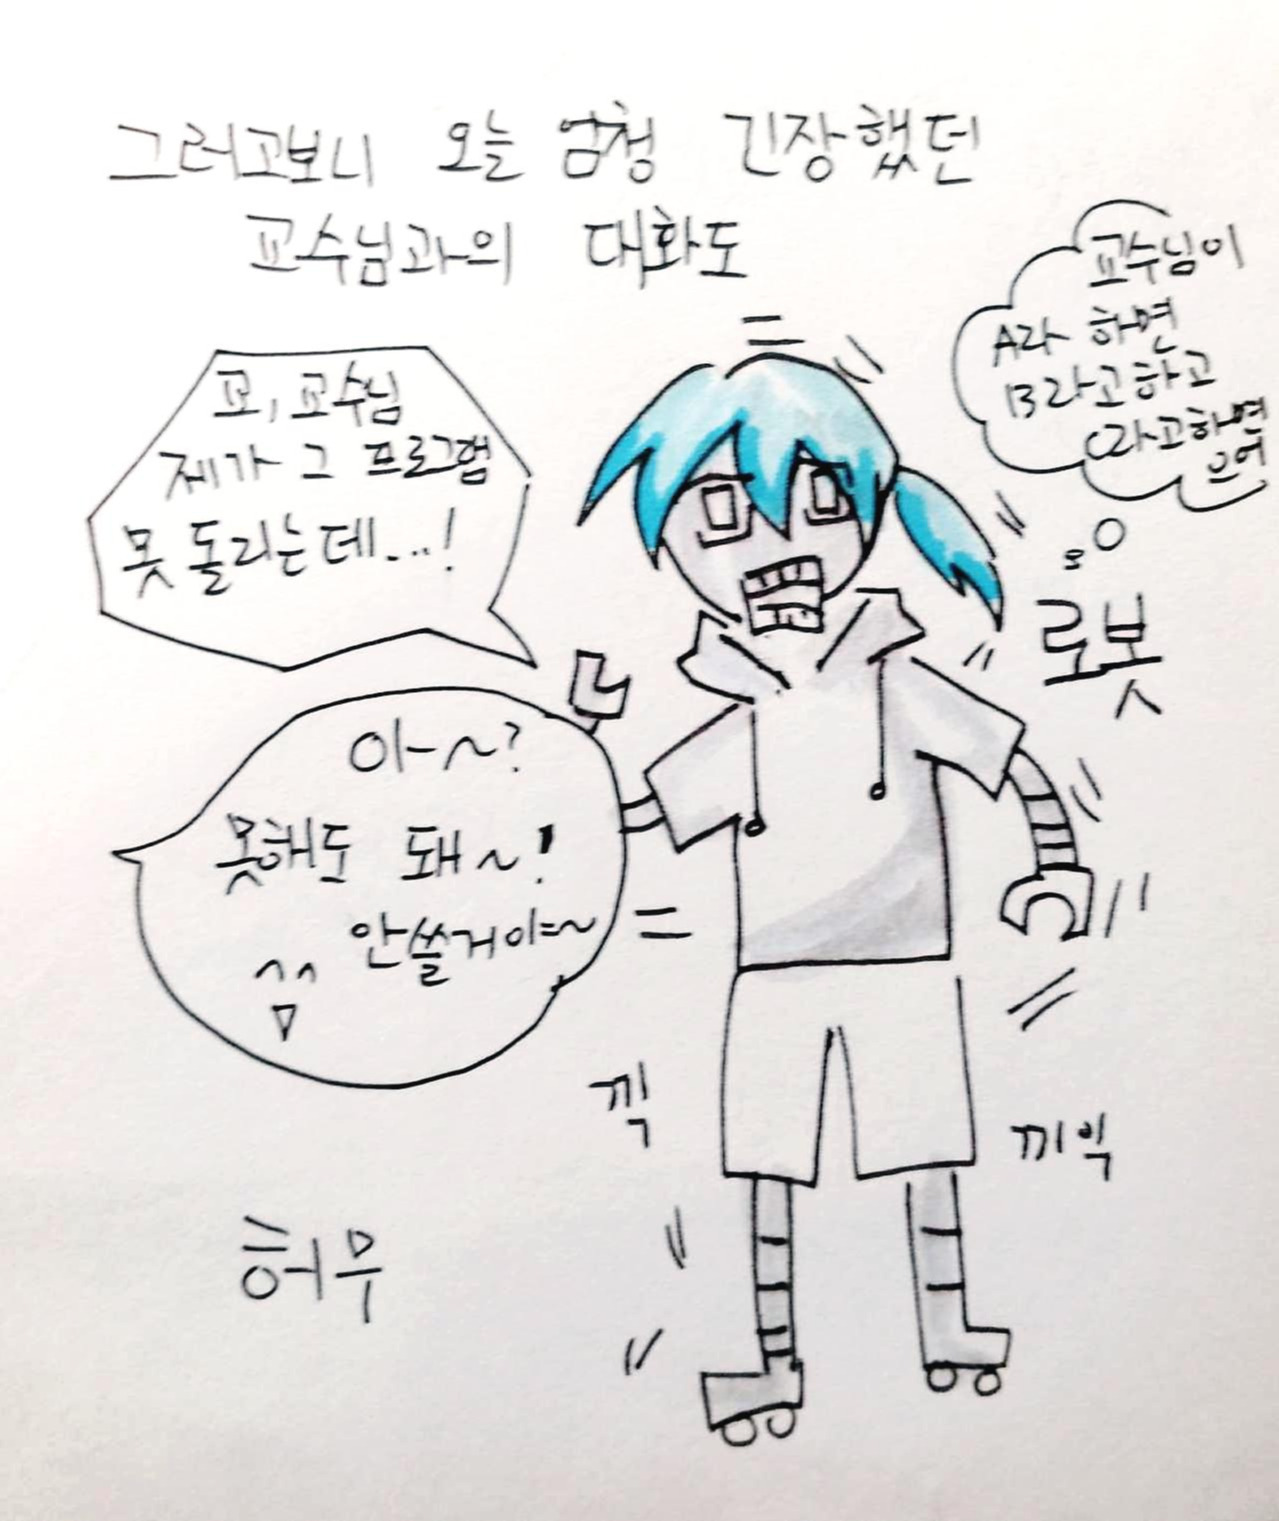 그러고보니 오늘 엄청 긴장했던
교수님과의 대화도
교수님이
A라 하면
B라고하고
C라고하면
으어
교, 교수님
제가 그 프로그램
못 돌리는데...!
로봇
아~~?
못해도 돼~!
안쓸거야~
끽
끼익
허무